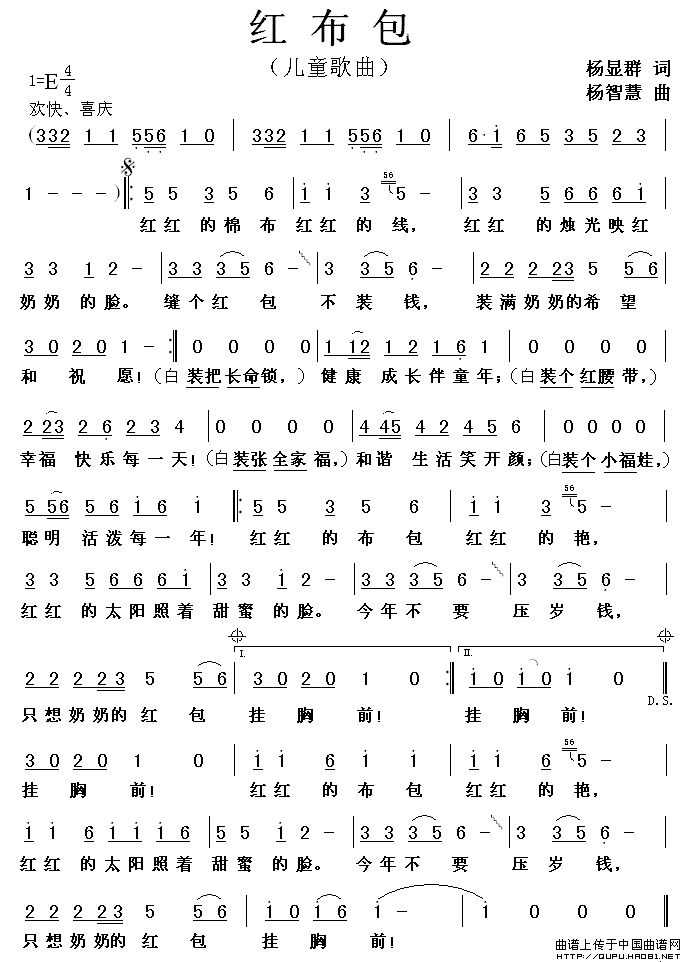 红布包
（儿童歌曲）
杨显群 词
杨智慧 曲
1=E 4/4
欢快、喜庆
(332 1 1 556 1 0 | 332 1 1 556 1 0 | 6· i 6 5 3 5 2 3 |
1 - - - )‖: 5 5 3 5 6 | i i 3 56 5 - | 3 3 5 6 6 6 i |
红红 的棉 布 红红 的 线， 红红 的烛光映红
3 3 i 2 - | 3 3 3 5 6 - | 3 3 5 6 - | 2 2 2 23 5 5 6 |
奶奶 的 脸。 缝个 红 包 不 装 钱， 装满奶奶的希 望
3 0 2 0 1 - :‖ 0 0 0 0 | 1 12 2 1 2 6 1 | 0 0 0 0 |
和 祝 愿！（白 装把长命锁，）健康 成长伴童年；（白装个红腰带，）
2 23 2 6 2 3 4 | 0 0 0 0 | 4 45 4 2 4 5 6 | 0 0 0 0 |
幸福 快乐每一天！（白装张全家 福，）和谐 生活笑开颜；（白装个小福娃，）
5 56 5 6 i 6 i ‖: 5 5 3 5 6 | i i 3 56 5 - |
聪明 活泼每一 年！ 红红 的 布 包 红红 的 艳，
3 3 5 6 6 6 i | 3 3 i 2 - | 3 3 3 5 6 - | 3 3 5 6 - |
红红 的太阳照着 甜蜜 的脸。 今年不 要 压 岁 钱，
I. II.
2 2 2 23 5 5 6 | 3 0 2 0 1 0 :‖ i 0 i 0 i 0 ‖
D.S.
只想奶奶的 红 包 挂 胸 前！ 挂 胸 前！
3 0 2 0 1 0 | i i 6 i i | i i 6 56 5 - |
挂 胸 前！ 红红 的 布 包 红红 的 艳，
i i 6 i i i 6 | 5 5 i 2 - | 3 3 3 5 6 - | 3 3 5 6 - |
红红 的太阳照着 甜蜜 的脸。 今年不 要 压 岁 钱，
2 2 2 23 5 5 6 | i 0 i 6 i - | i 0 0 0 ‖
只想奶奶的 红 包 挂 胸 前！
曲谱上传于中国曲谱网
HTTP://QUPU.HAO81.NET